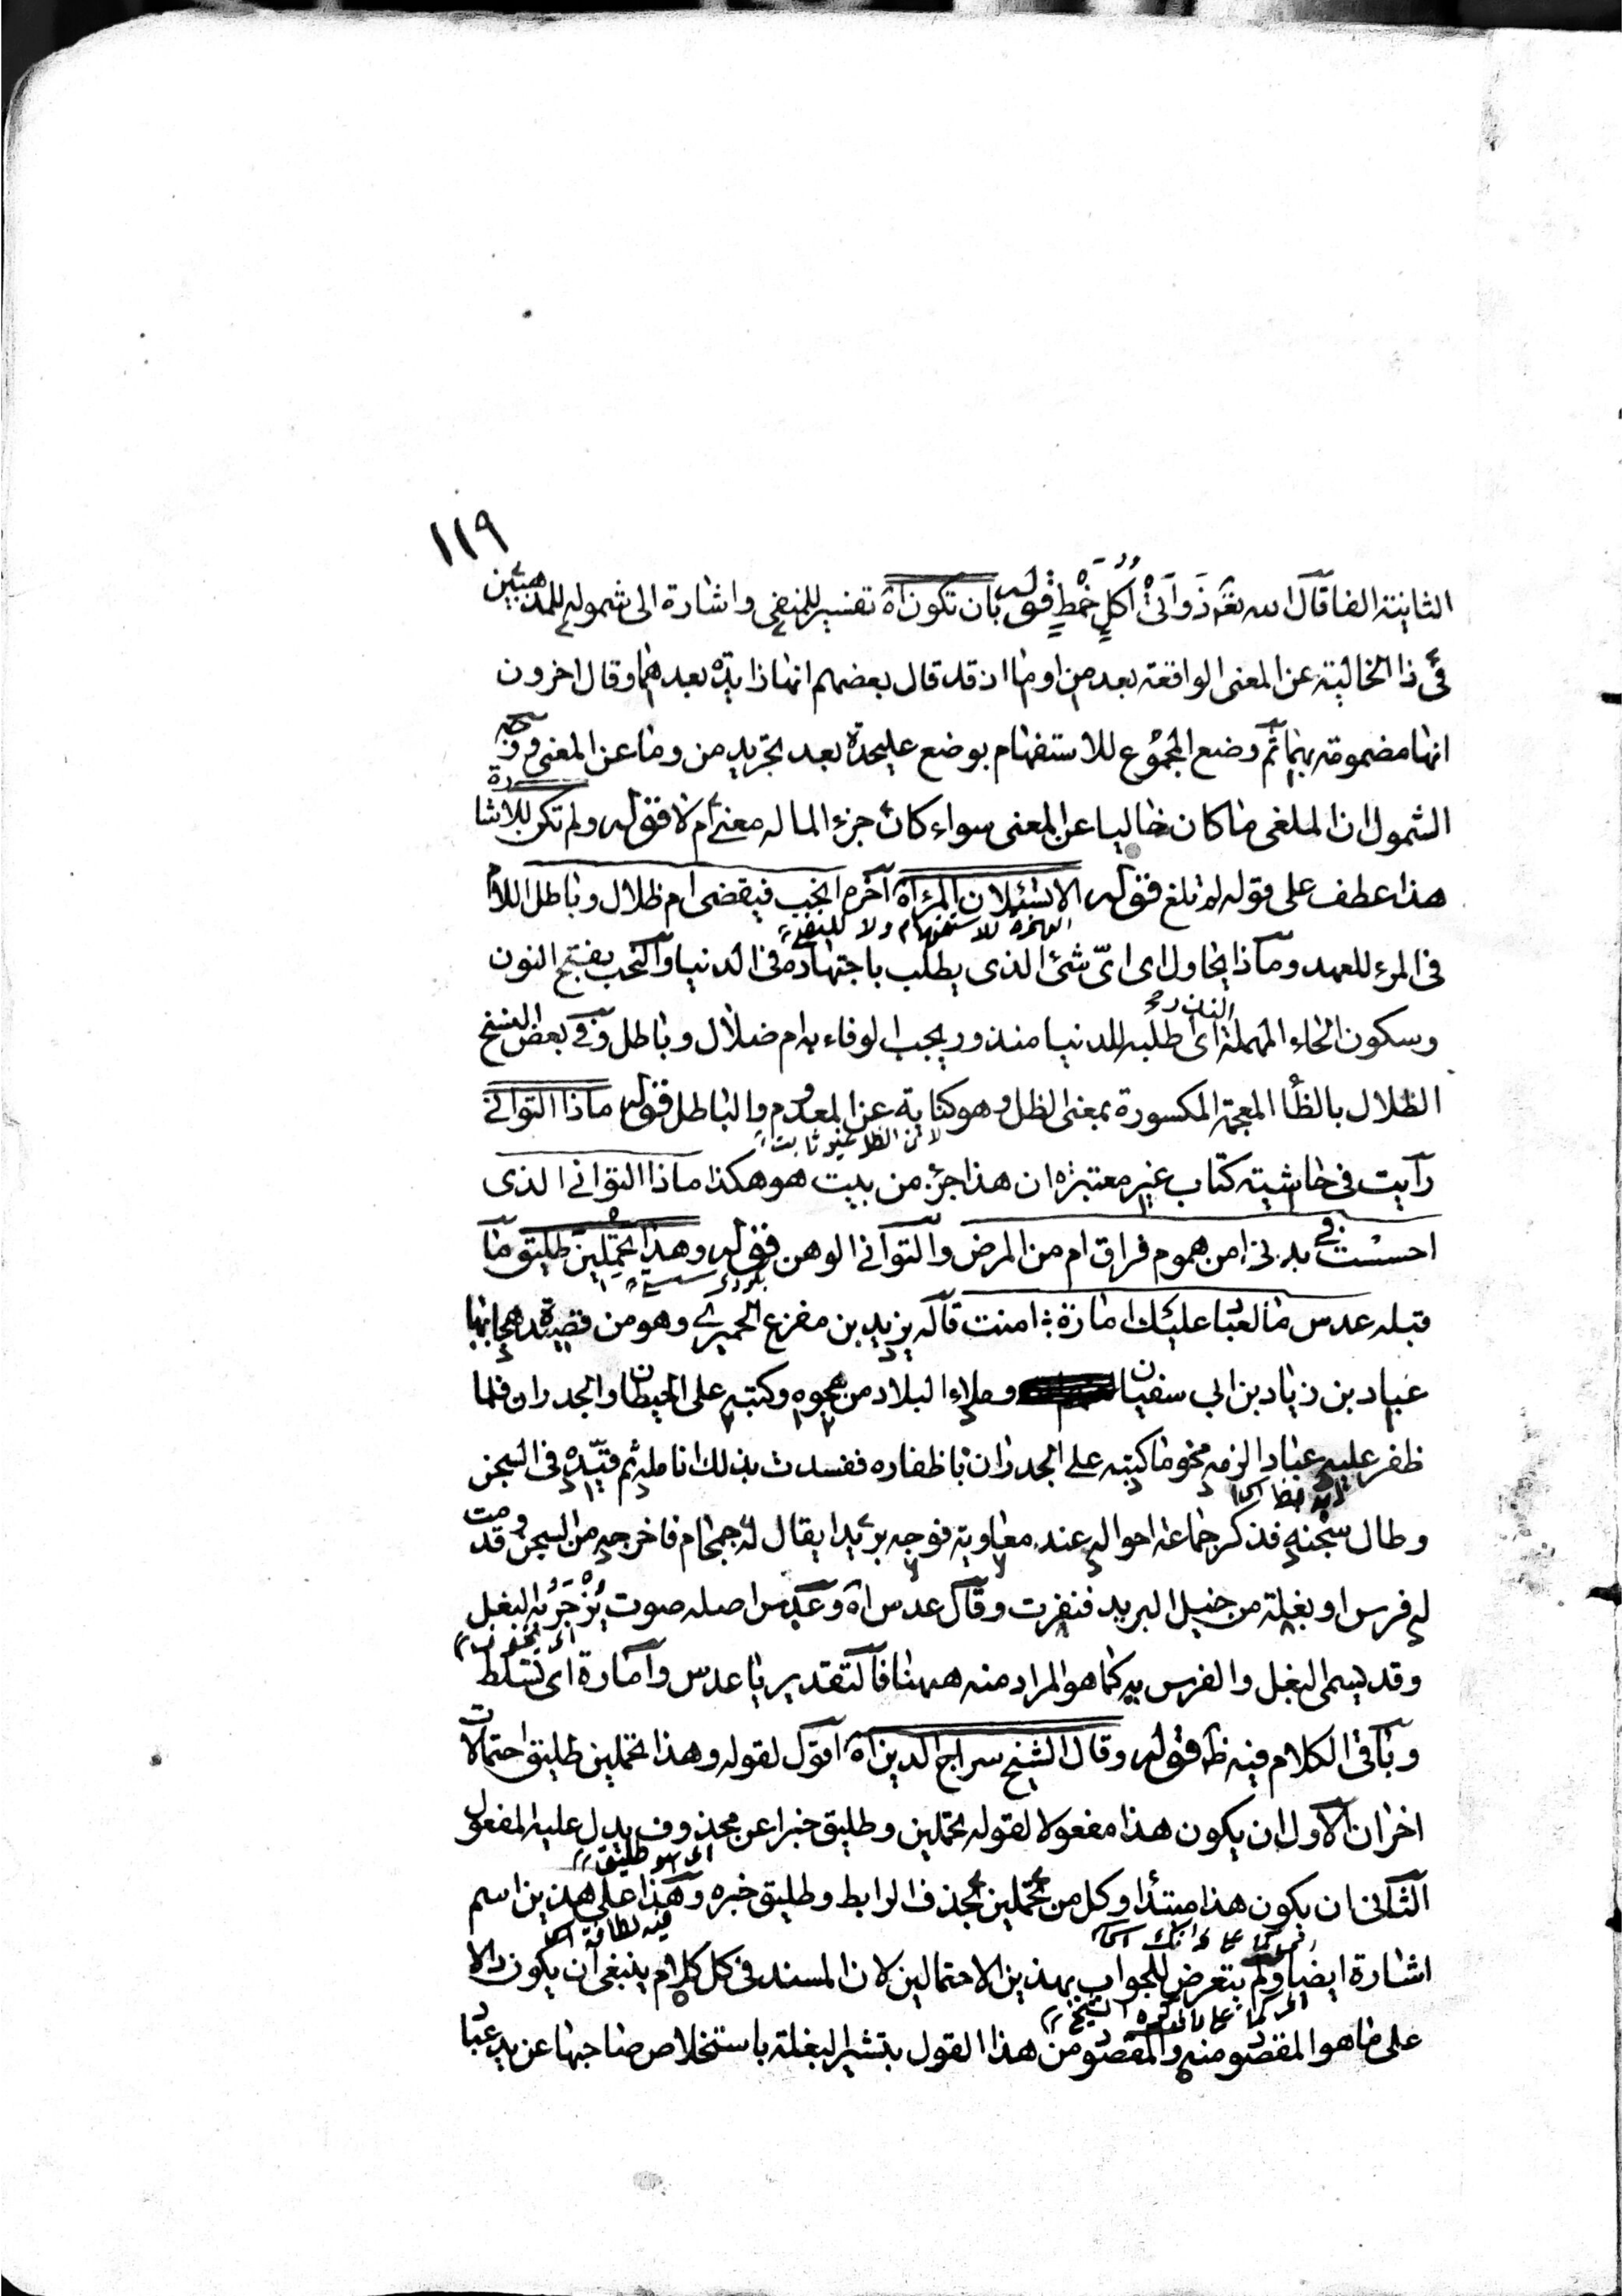 ١١٩
الثانية الفا قال الله تعم ذَوَاتَىْ اُكُلٍ خَمْطٍ قوله بان تكون اه تفسير للمنفى واشارة الى شموله للمذهبين
فى ذا الخالية عن المعنى الواقعة بعد من او ما اذ قد قال بعضهم انها زايدة بعدهما وقال اخرون
انها مضمومة بهما ثم وضع المجموع للاستفهام بوضع عليحدة بعد تجريد من وما عن المعنى ووجه
الشمول ان الملغى ما كان خاليا عن المعنى سواء كان جزء لما له معنى ام لا قوله ولم تكن للاشارة
هذا عطف على قوله لم تلغ قوله الا تسئلان المرء اه آخره انحب فيقضى ام ظلال وباطل اللام
الهمزة للاستفهام ولا للنفى
فى المرء للعهد وماذا يحاول اى اىّ شئ الذى يطلب باجتهاده فى الدنيا والنحب بفتح النون
وسكون الحاء المهملة اى اطلبه للدنيا منذور يجب الوفاء به ام ضلال وباطل وفى بعض النسخ
الظلال بالظا المعجمة المكسورة بمعنى الظل وهو كناية عن المعدوم والباطل قوله ماذا التوانى
لان الظل غير ثابت
رأيت فى حاشية كتاب غير معتبرة ان هذا جزء من بيت هو هكذا ماذا التوانى الذى
احسست فى بدنى امن هموم فراق ام من المرض والتوانى الوهن قوله وهذا تحملين طليق ما
قبله عدس ما لعباد عليك امارة : امنت قاله يزيد بن مفرغ الحميرى وهو من قصيدة هجا بها
عباد بن زياد بن ابى سفيان وملاء البلاد من هجوه وكتبه على الحيطان والجدران فلما
ظفر عليه عباد الزمه محو ما كتبه على الجدران باظفاره ففسدت بذلك انامله ثم قيّده فى السجن
وطال سجنه فذكر جماعة احواله عند معاوية فوجه بريدا يقال له جمحام فاخرجه من السجن وقدمت
له فرس او بغلة من خيل البريد فنفرت وقال عدس اه وعدس اصله صوت يُزْجَرُ به البغل
وقد يسمى البغل والفرس به كما هو المراد منه ههنا فالتقدير يا عدس وامارة اى تسلط
وباقى الكلام فيه ظ قوله وقال الشيخ سراج الدين اه اقول لقوله وهذا تحملين طليق احتمالات
اخران الاول ان يكون هذا مفعولا لقوله تحملين وطليق خبرا عن محذوف يدل عليه المفعول
اى هو طليق
الثانى ان يكون هذا مبتدأ وكل من تحملين بحذف الرابط وطليق خبره وهذا على هذين اسم
اشارة ايضا ولم يتعرض للجواب بهذين الاحتمالين لان المسند فى كل كلام ينبغى ان يكون دالا
على ما هو المقصود منه والمقصود من هذا القول بتشير البغلة باستخلاص صاحبها عن يد عباد